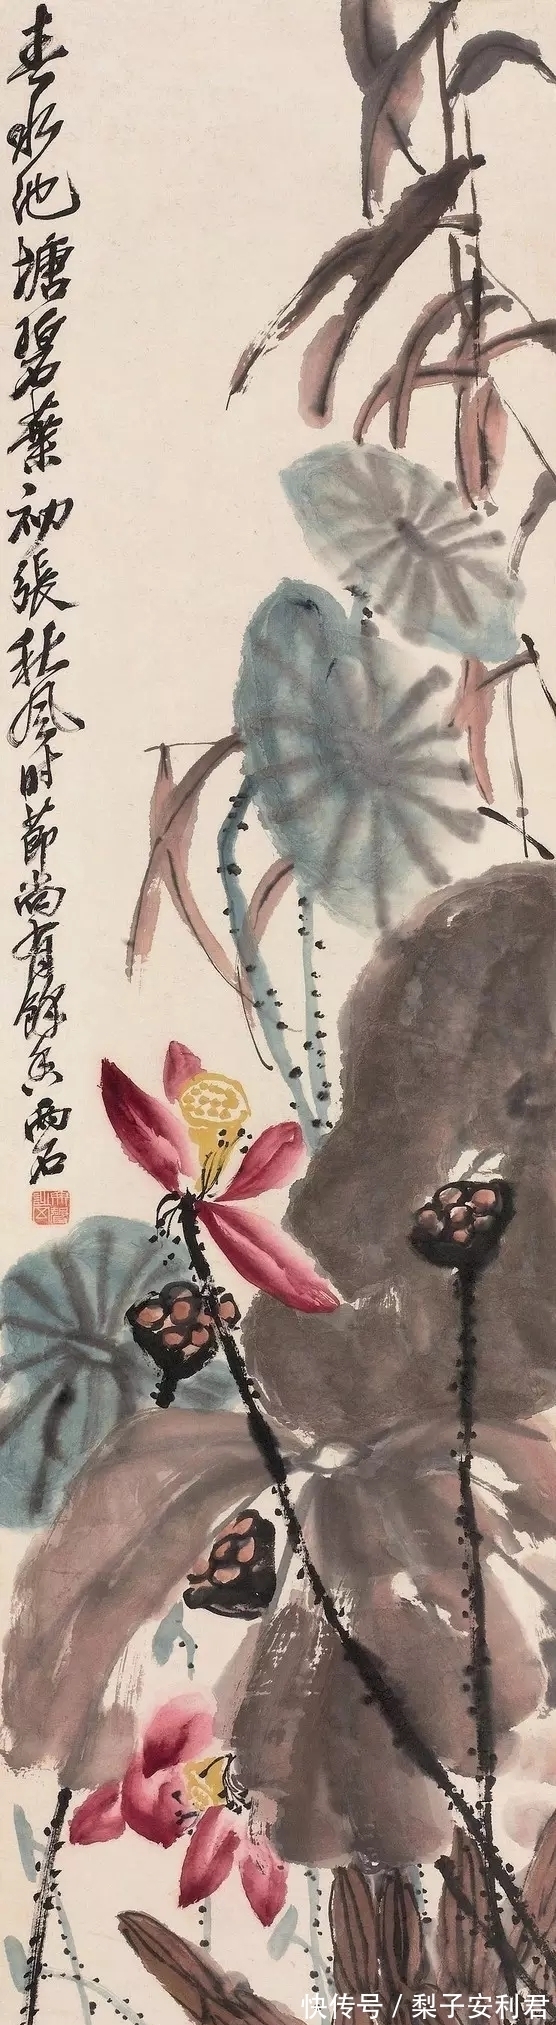 春水池塘碧葉初張秋风时節尚有餘香两石
快传号／梨子安利君